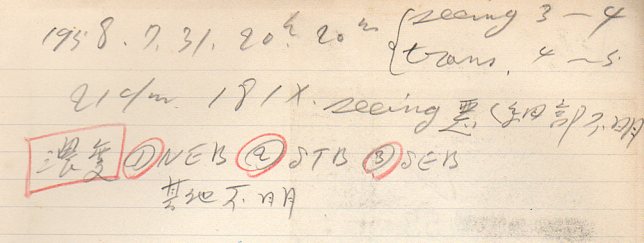 1958. 7. 31. 20h 20m { seeing 3-4
trans. 4~5
21cm. 181X. seeing 悪く細部不明
濃度 ① NEB ② STB ③ SEB
其他不明